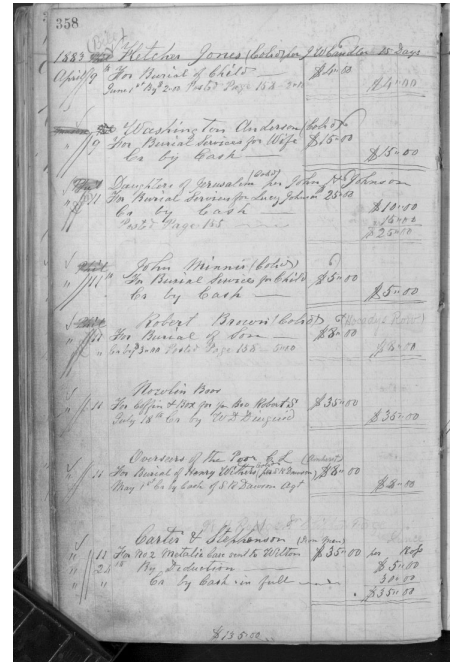 358
1883 Fletcher Jones (Cold) per J W Candler 15 Days
April 9 th For Burial of Child — $4.00
Posted Page 155 $4.00
Washington Anderson (Cold)
" 9 For Burial Services for Wife $15.00
Cr by Cash — $15.00
Daughters of Jerusalem (Cold) per John H Johnson
" 11 For Burial Services for Lucy Johnson $25.00
Cr by Cash — $10.00
Posted Page 155 15.00
$25.00
John Minnis (Cold)
" 11 th For Burial Services for Child $5.00
Cr by Cash — $5.00
Robert Brown (Cold)
" 11 For Burial of Son — $8.00
Posted Page 155
Nowlin Bro
" 11 For Coffin & Box for Bro Robert S $35.00
July 18th Cr by W D Diuguid $35.00
Overseers of the Poor
" 11 For Burial of Henry Withers, per S R Dawson, $8.00
May 1st Cr by Cash of S R Dawson Agt $8.00
Carter & Stephenson
" 12 For No 2 Metalic Case sent to Wilton $35.00
" 24 th By Deduction — $5.00
" " Cr by Cash in full — 30.00
$35.00
$135.00